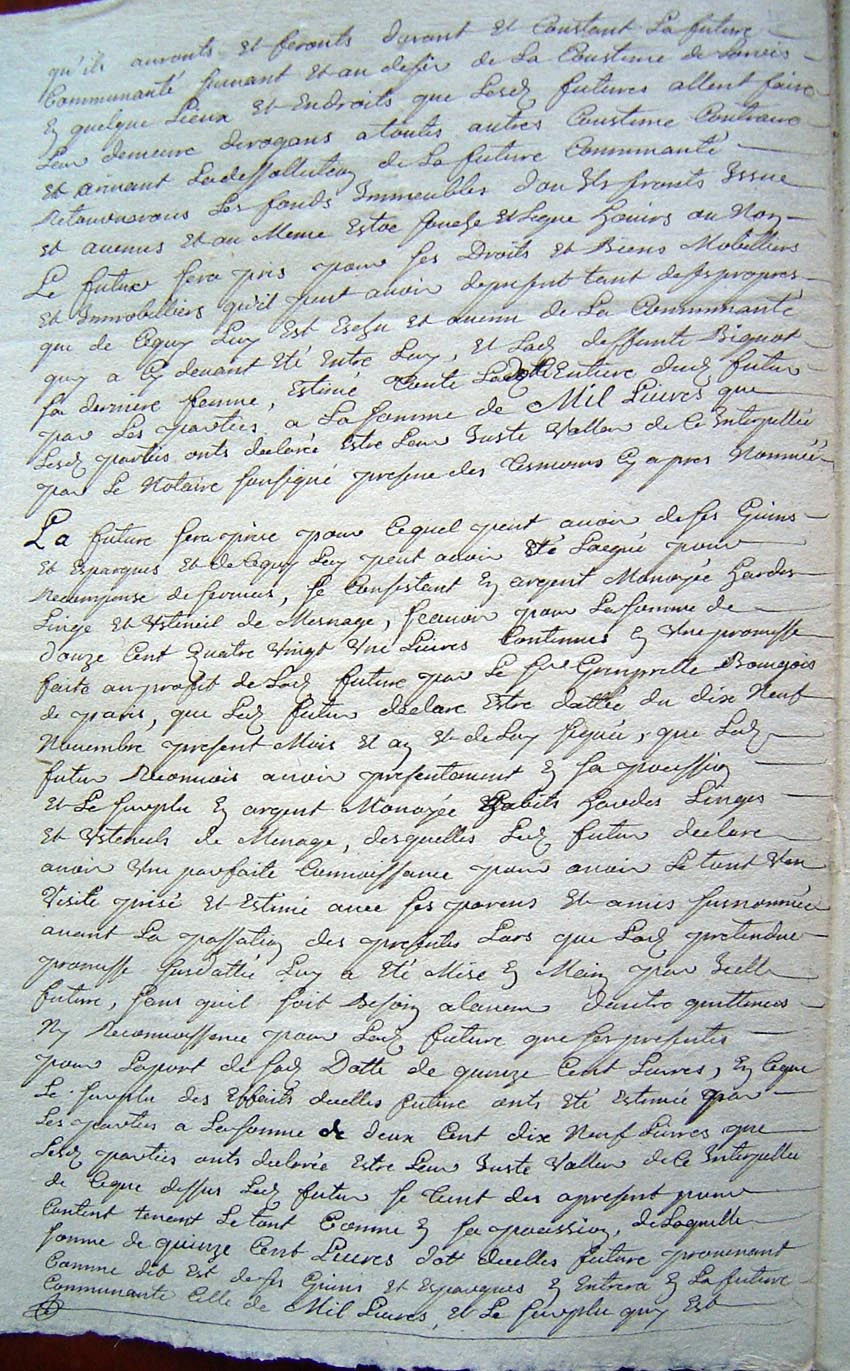 qu'ils auronts et feronts durant et Constant La future
Communauté suivant et au desir de La Coustume de paris
En quelque Lieux et Endroits que Lesd futures allent faire
Leur demeure derogans a toutes autres Coustume Contraire
et avenant La dessollution de La future Communauté
Retourneronts Les fonds Immeubles d'ou Ils seronts Issue
et avenus et au Meme Estoc souche et Ligne hoirs ou Non
Le futur sera pris pour ses Droits et Biens Mobilliers
et Immobilliers qu'il peut avoir de present tant de ses propres
que de Cequy Luy Est Eschu et avenu de La Communauté
quy a Cy devant Eté Entre Luy, et Lad deffunte Bignot
sa derniere femme, Estimé toute Lad Entiere dud futur
par Les parties a La somme de Mil Livres que
Lesd parties onts declaré Estre Leur Juste Valleur de Ce Interpellée
par Le Notaire sousigné presence des temoins Cy apres Nommée
La future sera prise pour Cequel peut avoir de ses Gains
et Espargnes et de Cequy Luy peut avoir Eté Laegué pour
Recompense de services, se Consistant En argent Monoyée hardes
Linge et Ustencil de Mesnage, scavoir pour La somme de
douze Cent Quatre Vingt Une Livres Contenues En Une promesse
faite au profit de Lad future par Le Sr Bourgois
de paris, que Led futur declare Estre dattée du dix Neuf
Novembre present Mois et an et de Luy signée, que Led
futur Reconnois avoir presentement En sa possession
et Le surplu En argent Monoyée habits hardes Linges
et Ustencils de Menage, desquelles Led futur declare
avoir Une parfaite Connoissance pour avoir Le tout Veu
Visité prisé et Estimé avec ses parens et amis surnommée
avant La passation des presentes Lors que Lad pretendue
promesse susdattée Luy a Eté Mise En Main par Icelle
future, sans quil soit Besoin alavenir dautre quittances
Ny Reconnoissance pour Lad future que Ses presentes
pour Laport de sad Dotte de quinze Cent Livres, En Ceque
Le surplu des Effaits dicelles future onts Eté Estimée par
Les parties a La somme de deux Cent dix Neuf Livres que
Lesd parties onts declarée Estre Leur Juste Valleur de Ce Interpellée
de Ceque dessus Led futur se tient des apresent pour
Content tenant Le tout Comme En sa possession, de Laquelle
somme de quinze Cent Livres dott dicelles future provenant
Comme dit Est de ses Gains et Espargnes En Entrera En La future
Communauté Celle de Mil Livres, et Le surplu quy Est